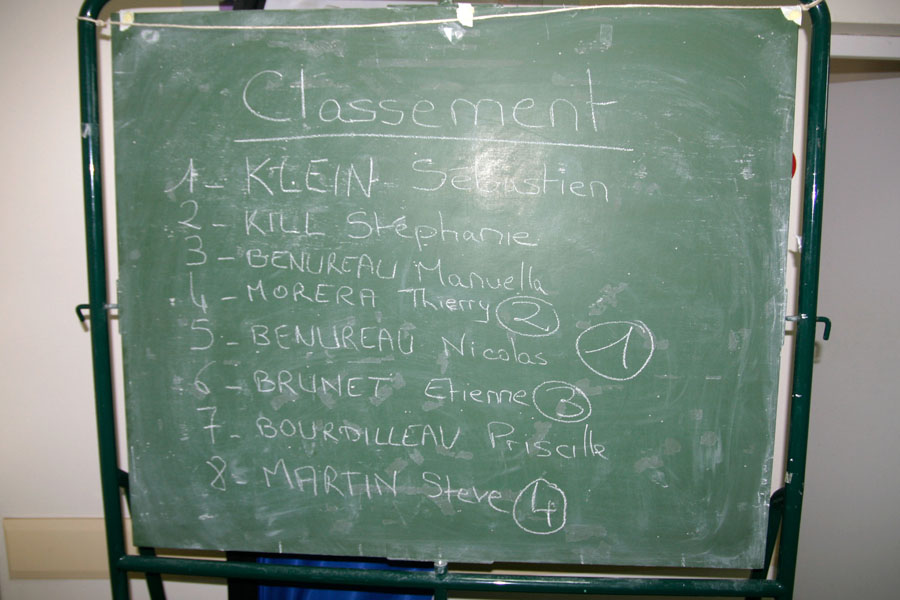 Classement
1- KLEIN Sébastien
2- KILL Stéphanie
3- BENUREAU Manuella
4- MORERA Thierry 2
5- BENUREAU Nicolas 1
6- BRUNET Etienne 3
7- BOURDILLEAU Priscille
8- MARTIN Steve 4